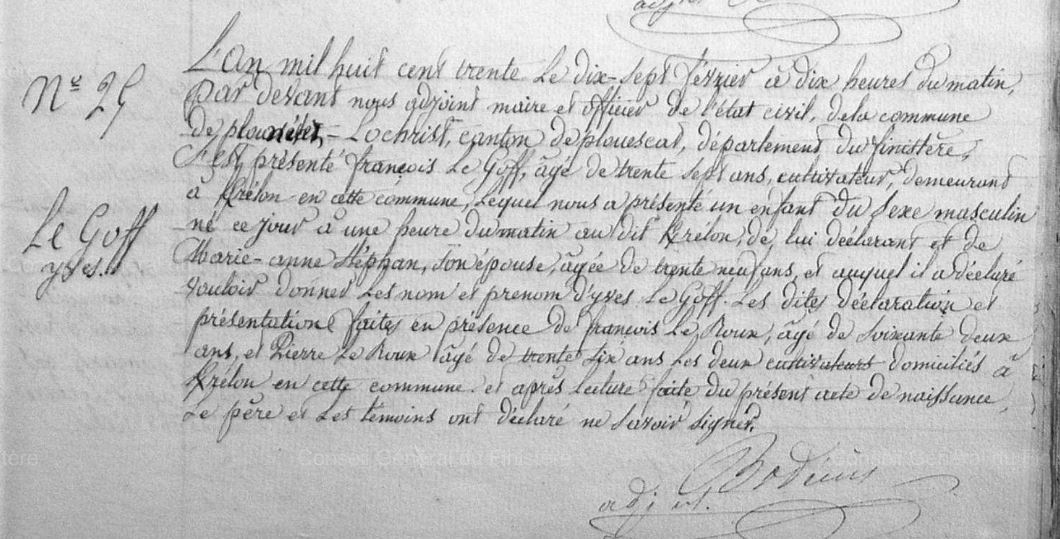 adjt
N° 25
L'an mil huit cent trente Le dix-sept février à dix heures du matin,
Par devant nous adjoint maire et officier de l'état civil, dela commune
de plounévez-Lochrist, canton de plouescat, département du finistère,
S'est présenté françois Le Goff, âgé de trente sept ans, cultivateur, demeurant
à Krélon en cette commune, Lequel nous a présenté un enfant du Sexe masculin
Le Goff
yves.
né ce jour à une heure du matin au dit Krélon, de lui déclarant et de
Marie-anne Stéphan, Son épouse, agée de trente neuf ans, et auquel il a déclaré
vouloir donner Les nom et prenom d'yves Le Goff. Les dites déclaration et
présentation faites en présence de françois Le Roux, âgé de Soixante deux
ans, et Pierre Le Roux âgé de trente Six ans Les deux cultivateurs domiciliés à
Krélon en cette commune. et après Lecture faite du présent acte de naissance,
Le père et Les témoins ont déclaré ne Savoir signer.
adjt.
Conseil Général du Finistère